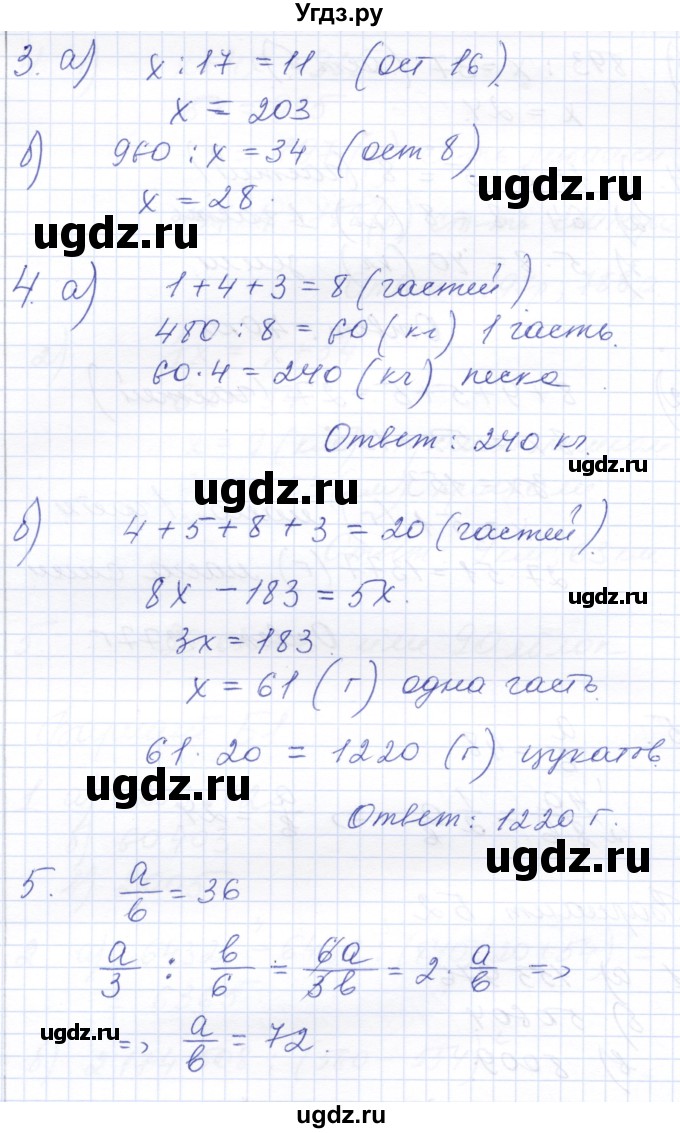 Угдз.ру
3. а) x : 17 = 11 (ост 16).
x = 203
б) 960 : x = 34 (ост 8).
x = 28.
ugdz.ru
ugdz.ru
4. а) 1 + 4 + 3 = 8 (частей)
480 : 8 = 60 (кг) 1 часть.
60 · 4 = 240 (кг) песка
Ответ: 240 кг.
ugdz.ru
ugdz.ru
б) 4 + 5 + 8 + 3 = 20 (частей).
8x - 183 = 5x.
ugdz.ru
3x = 183.
x = 61 (г) одна часть.
61 · 20 = 1220 (г) цукатов.
ugdz.ru
Ответ: 1220 г.
ugdz.ru
5. a/b = 36
a/3 : b/6 = 6a/3b = 2 · a/b =>
ugdz.ru
=> a/b = 72.
ugdz.ru